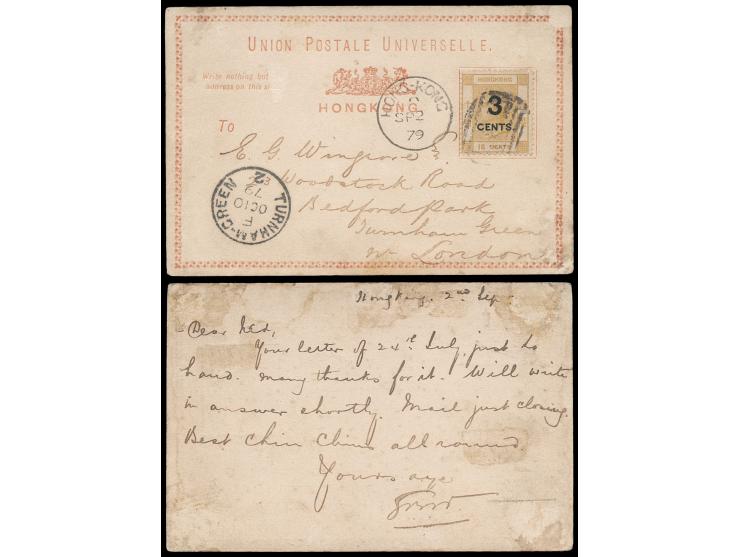 UNION POSTALE UNIVERSELLE.
Write nothing but
address on this si
HONGKONG.
To
HONG-KONG
C
SP 2
79
HONGKONG
3
CENTS.
16 CENTS
E. G. Wingrove Esq.
Woodstock Road
Bedford Park
Turnham Green
W London
TURNHAM-GREEN
F
OC 10
79
Hong Kong. 2nd Sep
Dear Ned,
Your letter of 24th July just to
hand. Many thanks for it. Will write
in answer shortly. Mail just closing.
Best Chin Chins all round.
Yours aye